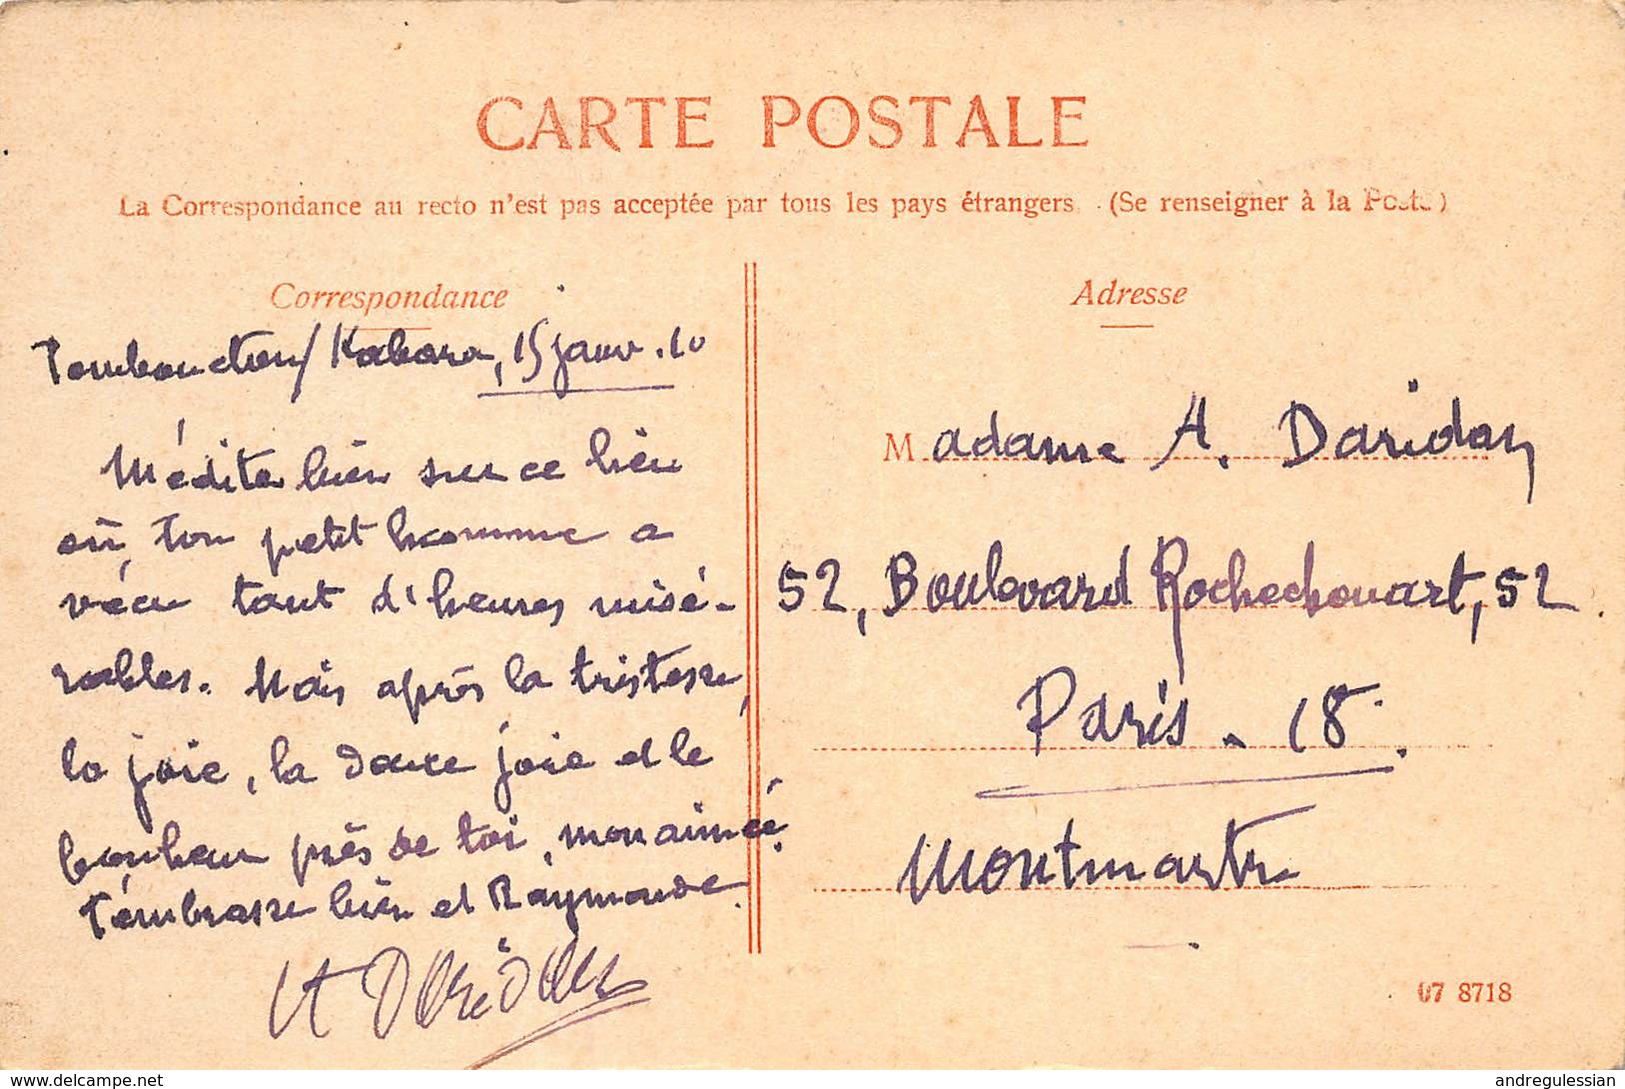 CARTE POSTALE
La Correspondance au recto n'est pas acceptée par tous les pays étrangers. (Se renseigner à la Poste)
Correspondance
Tombouctou/Kabara, 15 janv. 10
Médite bien sur ce lieu
où ton petit homme a
vécu tant d'heures misé-
rables. Mais après la tristesse,
la joie, la douce joie et le
bonheur près de toi, mon aimée.
T'embrasse bien et Raymonde.
A Daridan
Adresse
Madame A. Daridan
52, Boulevard Rochechouart, 52.
Paris - 18.
Montmartre
07 8718
delcampe.net
andregulessian